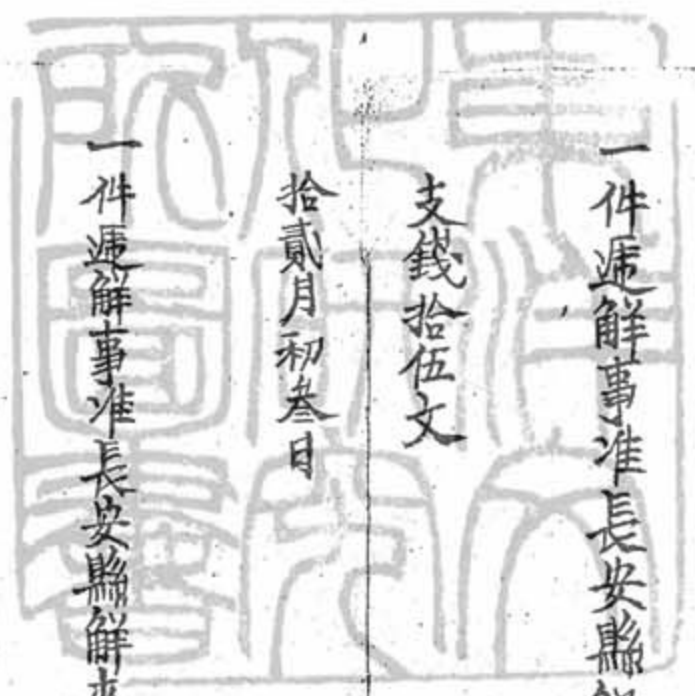 一件遞解事准長安縣
支錢拾伍文
拾貳月初叁日
一件遞解事准長安縣解